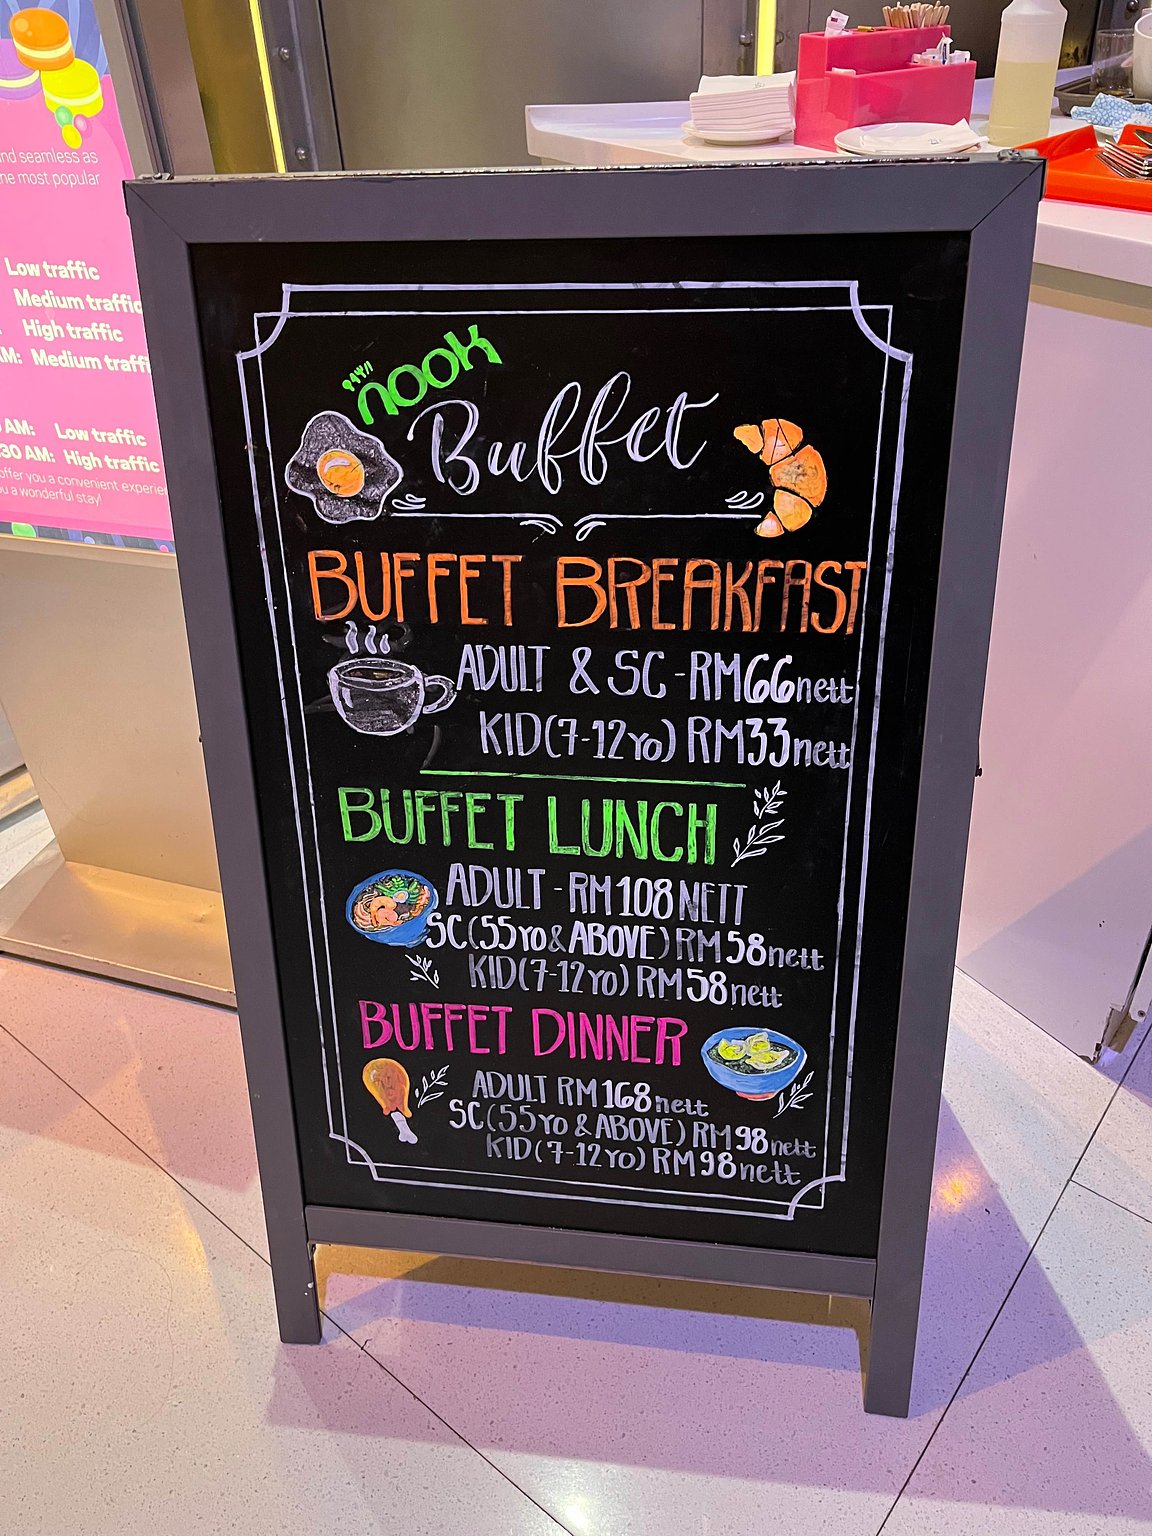 nd seamless as
he most popular
Low traffic
Medium traffic
High traffic
AM: Medium traffi
AM: Low traffic
30 AM: High traffic
offer you a convenient experien
u a wonderful stay!
nook
Buffet
BUFFET BREAKFAST
ADULT & SC - RM66nett
KID(7-12YO) RM33nett
BUFFET LUNCH
ADULT - RM108NETT
SC(55YO & ABOVE) RM58nett
KID(7-12YO) RM58nett
BUFFET DINNER
ADULT RM168nett
SC(55YO & ABOVE) RM98nett
KID(7-12YO) RM98nett